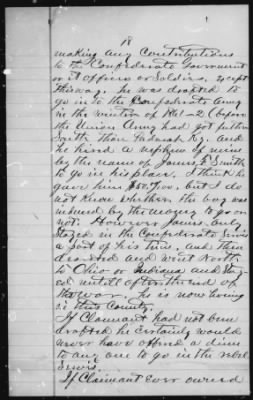 18
making any Contributions
to the Confederate Government
or it officers or Soldiers, except
this way. he was drafted to
go in to the Confederate Army
in the winter of 1861-2 (before
the Union Army had got further
south than Paducah Ky.) and
he hired a nephew of mine
by the name of James F. Smith
to go in his place. I think he
gave him $50.00, but I do
not know whether the boy was
induced by the money to go or
not. However James only
staid in the Confederate Servis
a part of his time, and then
deserted and went North
to Ohio or Indiana and stay-
ed untill after the end of
the war. he is now living
in this County.
If Claimant had not been
drafted he certainly would
never have offered a dime
to any one to go in the rebel
Servis.
If Claimant ever owned